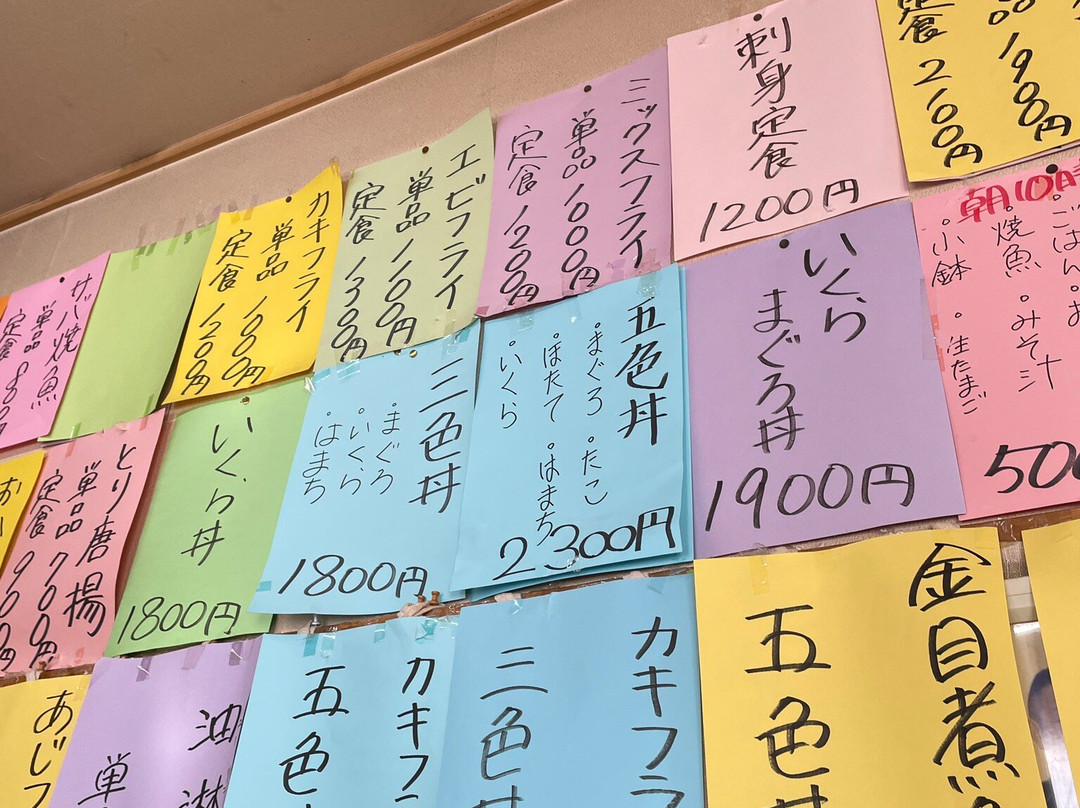 定食 2100円
1900円
刺身定食
1200円
ミックスフライ
単品 1000円
定食 1200円
エビフライ
単品 1100円
定食 1300円
カキフライ
単品 1000円
定食 1200円
サバ焼魚
単品
定食
朝10時
ごはん
焼魚 ・みそ汁
・小鉢 ・生たまご
500
いくら
まぐろ丼
1900円
五色丼
・まぐろ ・たこ
・ほたて ・はまち
・いくら
2300円
三色丼
・まぐろ
・いくら
・はまち
1800円
いくら丼
1800円
とり唐揚
単品 700円
定食 900円
金目煮
五色丼
カキフラ
三色
カキフ
五色
油淋
単
あじフ